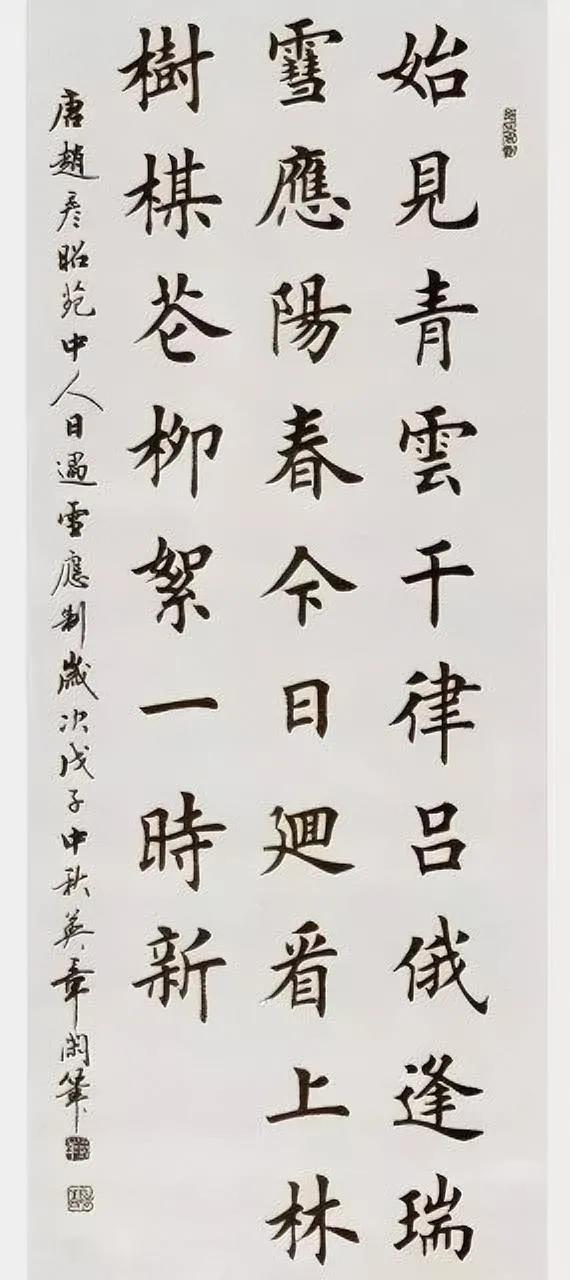 始見青雲干律呂俄逢瑞
雪應陽春今日迴看上林
樹楳花柳絮一時新
唐趙彥昭苑中人日遇雪應制歲次戊子中秋英章閑筆